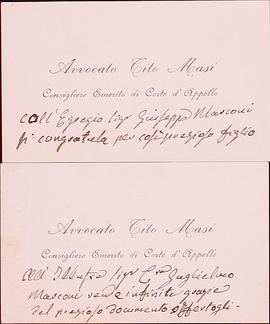 Avvocato Tito Masi
Consigliere Emerito di Corte d'Appello
coll'Egregio Sigr Giuseppe Marconi
si congratula per così prezioso figlio
Avvocato Tito Masi
Consigliere Emerito di Corte d'Appello
Sigr Guglielmo
Marconi rende infinite grazie
del prezioso documento offertogli.